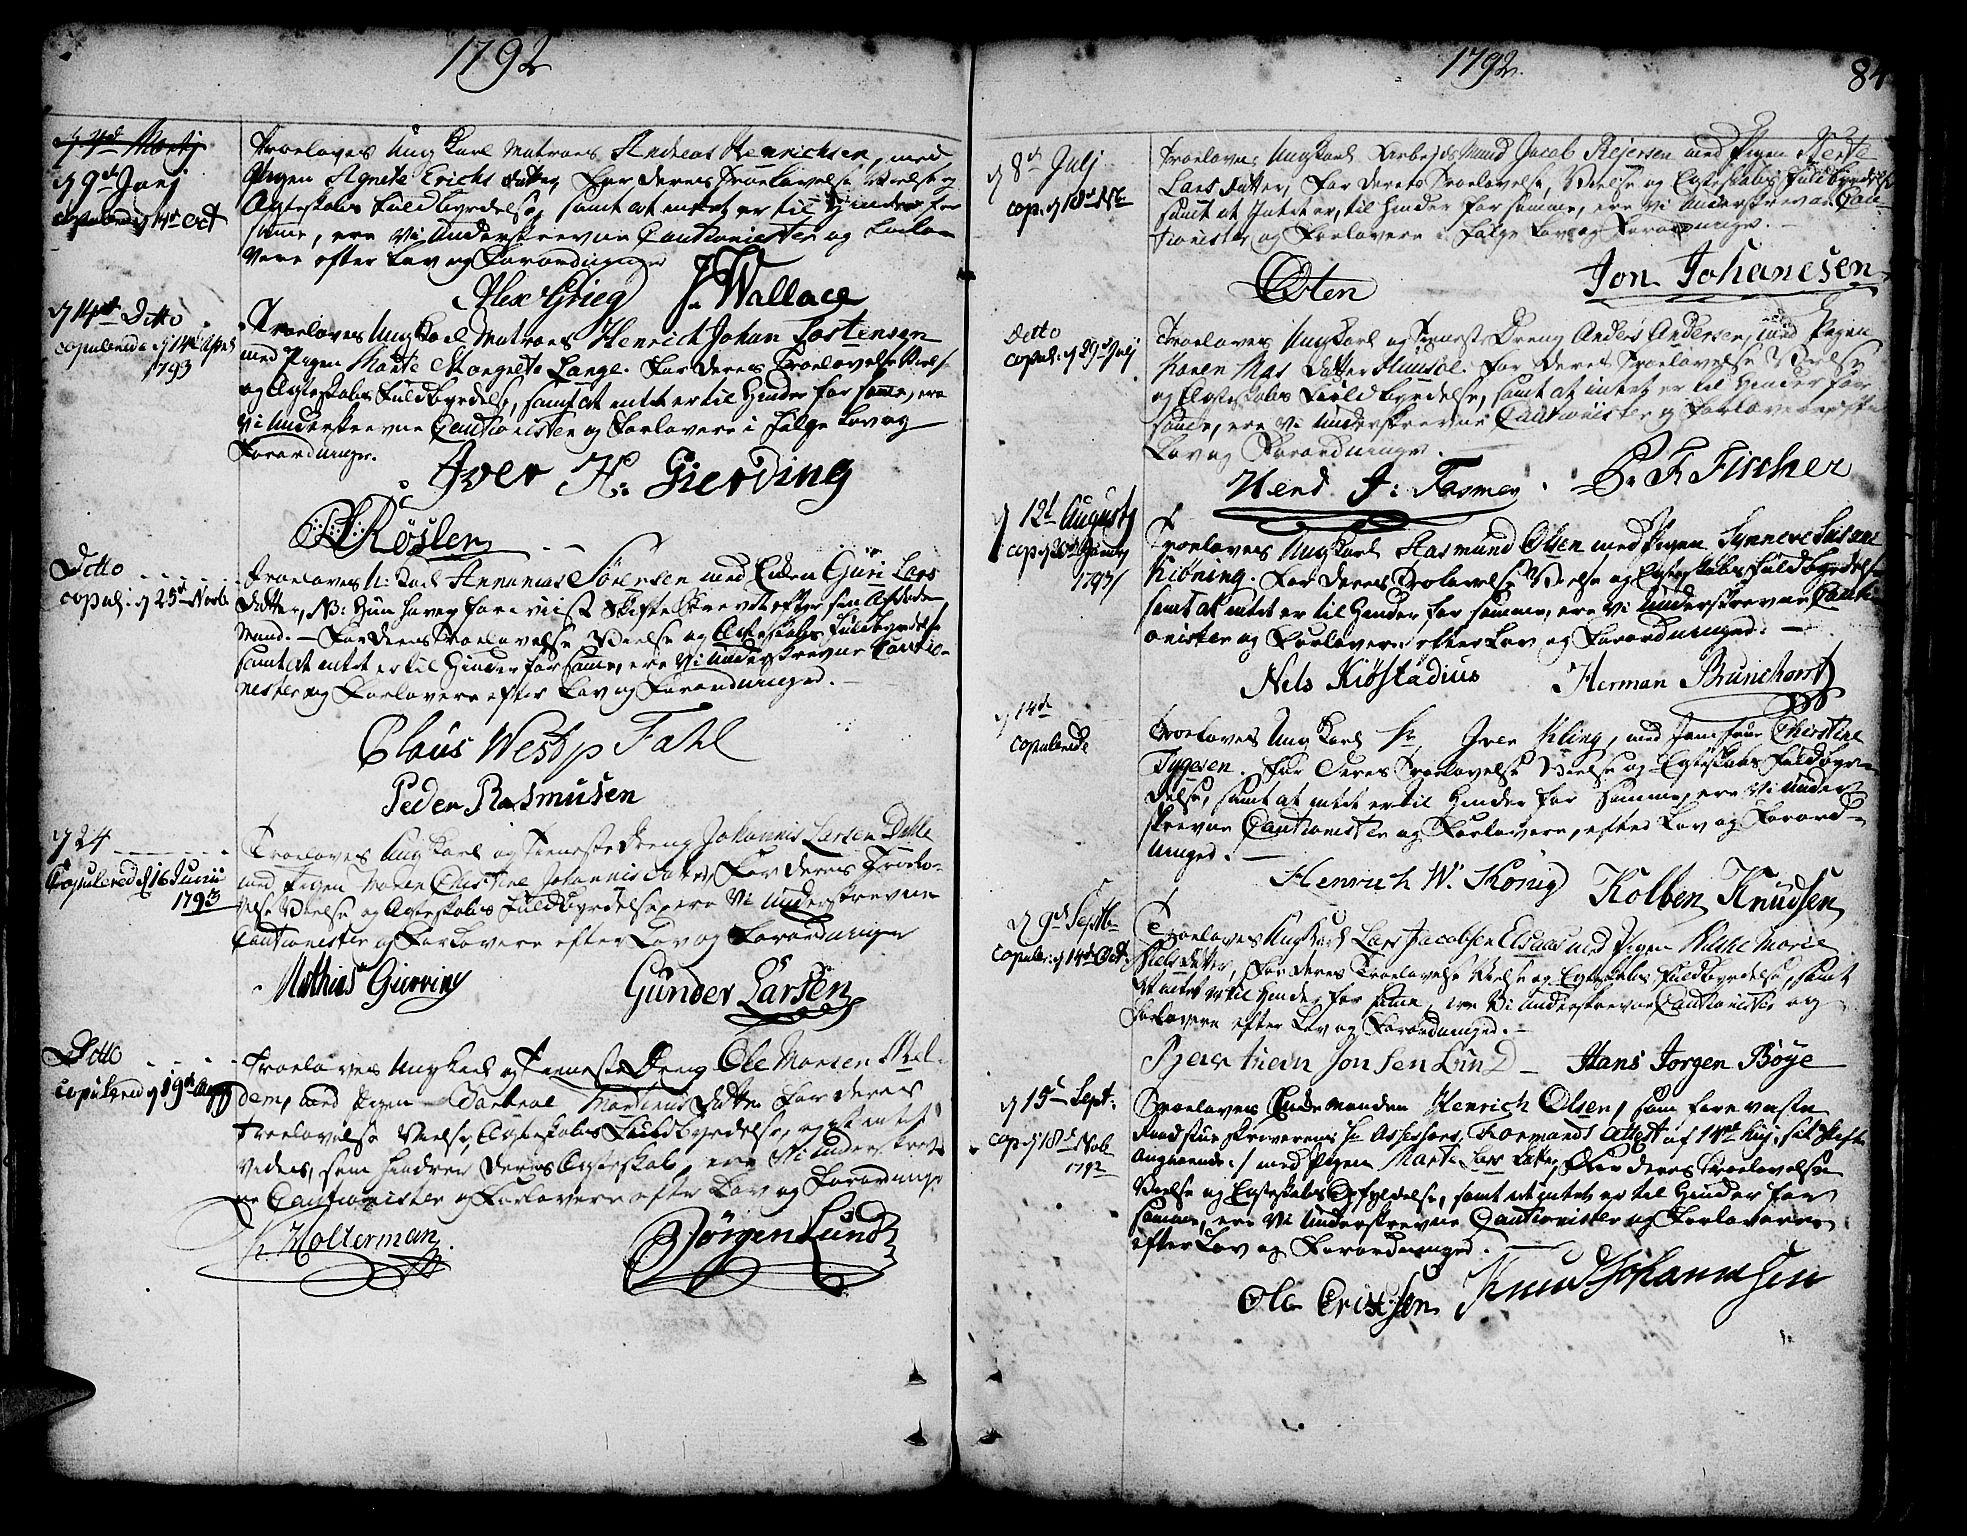 1792
d 7de Martij
d 9de Junj
copulered d 14de Oct
Troeloves Ung Karl Matroes Andreas Henrichsen, med
Pigen Agnete Erichs datter, For deres Troelovelse, Vielse og
Ægteskabs Fuldbyrdelse, samt at intet er til Hinder for
samme, ere Vi Underskrevne Cautionister og Forlo-
vere efter Lov og Forordninger
Alex Grieg J. Wallace
d 14de Ditto
copulered d 14de April
1793
Troeloves Ung Karl Matroes Henrich Johan Tostensen
med Pigen Marte Margrete Lange. For deres Troelovelse Viels
og Ægteskabs Fuldbyrdelse, samt at intet er til Hinder for samme, ere
Vi Underskrevne Cautionister og Forlovere i Følge Lov og
Forordninger.
Iver H: Gierding
Røslen
Ditto
copul: d 25de Novb
Troeloves U: Karl Annanias Sörensen med Enken Guri Lars
datter, NB: Hun haver først Skifte efter sin Afdøde
Mand. - For deres Troelovelse Vielse og Ægteskabs Fuldbyrdelse
samt at intet er til Hinder for samme, ere Vi Underskrevne Cautio-
nister og Forlovere efter Lov og Forordninger. -
Claus Westrp Fahl
Peder Rasmusen
d 24
Copulered d 16 Junii
1793
Troeloves Ung Karl og Tieneste Dreng Johannis Larsen Dahle
med Pigen Maren Christine Johannis datter, For deres Troelo-
velse Vielse og Ægteskabs Fuldbyrdelse, ere Vi Underskrevne
Cautionister og Forlovere efter Lov og Forordninger
Mathias Gierving Gunder Larsen
Ditto
copulered d 19de Augs
Troeloves Ungkarl og Tieneste Dreng Ole Monsen Mel-
dem, med Pigen Barbroe Martinus datter For deres
Troelovelse Vielse, Ægteskabs Fuldbyrdelse, og at intet
videres, som hindrer deres Ægteskab, ere Vi Underskrev-
ne Cautionister og Forlovere efter Lov og Forordninger
H. Molterman Jørgen Lund
1792.
84
d 8de Julj
cop: d 18de Nb:
Troeloves Ungkarl Arbeids Mand Jacob Rejersen med Pigen Berte
Lars datter, For deres Troelovelse, Vielse og Egteskabs Fuldbyrdelse
samt at Intet er, til Hinder for samme, ere Vi Underskrevne Cau-
tionister og Forlovere i Følge Lov og Forordninger. -
Østen Jon Johanesen
Ditto
copul: d 29de Julj
Troeloves Ungkarl og Tieneste Dreng Anders Andersen, med Pigen
Karen Mas datter Huusöe. For deres Troelovelse Vielse
og Ægteskabs Fuldbyrdelse, samt at intet er til Hinder for
samme, ere Vi Underskrevne Cautionister og Forlovere efter
Lov og Forordninger.
Hend J: Fasmer. C: F Fischer
d 12te Augustj
cop d 20de
1793/
Troeloves Ung Karl Rasmund Olsen med Pigen Synneve Susanne
Kiöning. For deres Trolovelse Vielse og Egteskabs Fuldbyrdelse
samt at intet er til Hinder for samme, ere Vi Underskrevne Cauti-
onister og Forlovere efter Lov og Forordninger. -
Nels Kiöstadius Herman Brunchorst
d 14de
copulerede
Troeloves Ung Karl Sr Iver Kling, med Jomfrue Christine
Tygesen. For Deres Troelovelse Vielse og Egteskabs Fuldbyr-
delse, samt at intet er til Hinder for samme, ere Vi Under
skrevne Cautionister og Forlovere, efter Lov og Forord-
ninger. -
Henrich W. König Kolben Knudsen
d 9de Septb:
Copuler: d 14de Oct:
Troeloves Ungkarl Lars Jacobsen Elsaas med Pigen Anne Marie
Niels datter, For deres Troelovelse Vielse og Egteskabs Fuldbyrdelse, samt
at intet er til Hinder for samme, ere Vi Underskrevne Cautionister og
Forlovere efter Lov og Forordninger. -
Jonsen Lund - Hans Jorgen Böye
d 15de Sept:
cop d 18de Nob
1792
Troeloves Enkemanden Henrich Olsen, som foreviste
Raadstueskriverens Hr Assessors Formands Attest af 14de Aug: sit Skifte
angaaende :/ med Pigen Marte Lars datter, For deres Troelovelse
Vielse og Egteskabs Opfyldelse, samt at intet er til Hinder for
samme, ere Vi Underskrevne Cautionister og Forlovere
efter Lov og Forordninger. -
Ole Erichsen Knud Johannesen